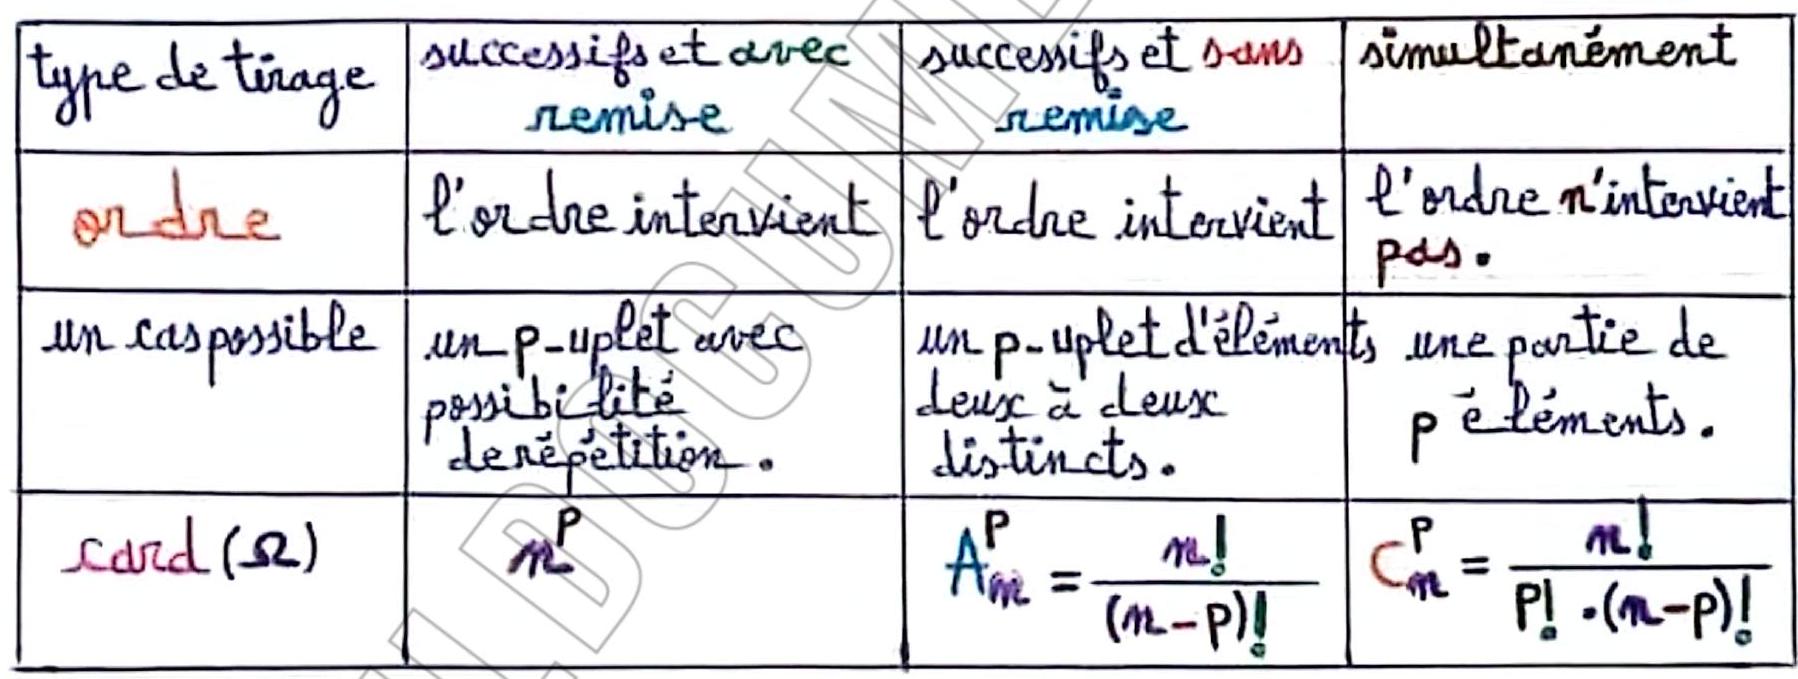 type de tirage
successifs et avec
remise
successifs et sans
remise
simultanément
ordre
l'ordre intervient
l'ordre intervient
l'ordre n'intervient
pas.
un cas possible
un p-uplet avec
possibilité
de répétition.
un p-uplet d'éléments
deux à deux
distincts.
une partie de
p éléments.
card (Ω)
n^p
A_n^p = n! / (n-p)!
C_n^p = n! / p! . (n-p)!